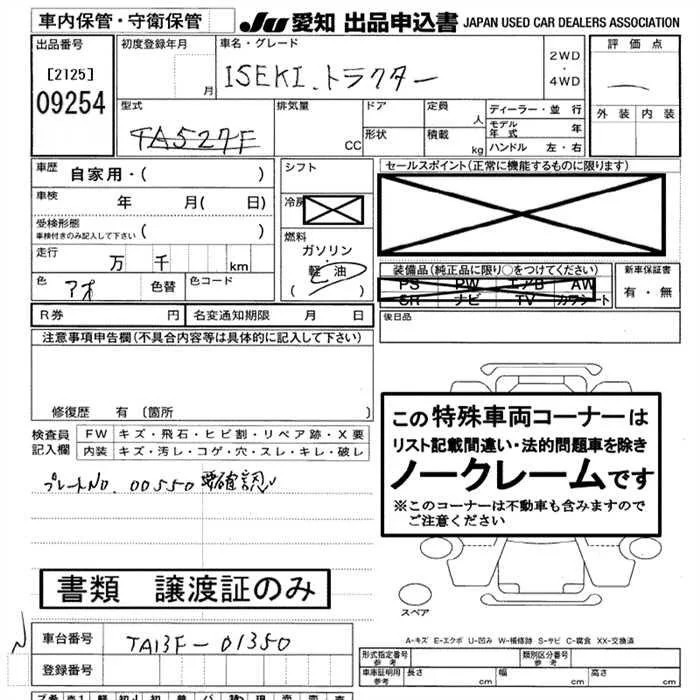 車内保管・守衛保管 JU 愛知 出品申込書 JAPAN USED CAR DEALERS ASSOCIATION
出品番号 初度登録年月 車名・グレード 評価点
[2125] 月 ISEKI.トラクター 2WD・4WD
09254 外装 内装
型式 排気量 ドア 定員 人 ディーラー・並行
TA527F CC 形状 積載 kg モデル年式 年
ハンドル 左・右
車歴 自家用・( ) シフト セールスポイント(正常に機能するものに限ります)
車検 年 月( 日) 冷房
受検形態 車検付きのみ記入して下さい ( ) 燃料
ガソリン・軽油
( )
走行 万 千 km 装備品(純正品に限り○をつけてください) 新車保証書
色 アオ 色替 色コード PS PW エアB AW 有・無
SR ナビ TV カワシート
R券 円 名変通知期限 月 日 後日品
注意事項申告欄(不具合内容等は具体的に記入して下さい)
修復歴 有 [箇所 ]
この特殊車両コーナーは
リスト記載間違い・法的問題車を除き
ノークレームです
※このコーナーは不動車も含みますので
ご注意ください
検査員記入欄 FW キズ・飛石・ヒビ割・リペア跡・X要
内装 キズ・汚レ・コゲ・穴・スレ・キレ・破レ
プレートNo. 00550 要確認
書類 譲渡証のみ
スペア
A-キズ E-エクボ U-凹み W-補修跡 S-サビ C-腐食 XX-交換済
車台番号 TA13F-01350
登録番号
形式指定番号 参考 類別区分番号 参考
車庫証明用 参考 長さ cm 幅 cm 高さ cm